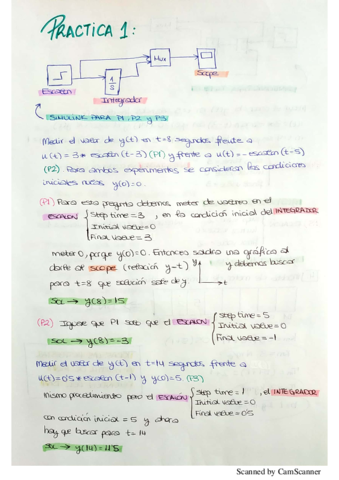 PRACTICA 1:
Mux
1
S
Scope
Escalón
Integrador
SIMULINK PARA P1, P2 y P3
Medir el valor de y(t) en t=8 segundos frente a
u(t) = 3 * escalón(t-3) (P1) y frente a u(t) = -escalón(t-5)
(P2). Para ambos experimentos se consideran las condiciones
iniciales nulas y(0)=0.
(P1) Para esta pregunta debemos meter de nuestro en el
ESCALÓN { Step time = 3, en la condición inicial del INTEGRADOR
Initial value = 0
Final value = 3
meter 0, porque y(0)=0. Entonces saldrá una gráfica al
darle al scope (relación y-t) y debemos buscar
y
para t=8 que solución sale de y.
t
SOL → y(8) = 15
(P2) Igual que P1 solo que el ESCALÓN { Step time = 5
Initial value = 0
Final value = -1
SOL → y(8) = -3
Medir el valor de y(t) en t=14 segundos frente a
u(t) = 0'5 * escalón(t-1) y y(0)=5. (P3)
Mismo procedimiento pero el ESCALÓN { Step time = 1, el INTEGRADOR
Initial value = 0
Final value = 0'5
con condición inicial = 5 y ahora
hay que buscar para t=14
SOL → y(14) = 11'5
Scanned by CamScanner